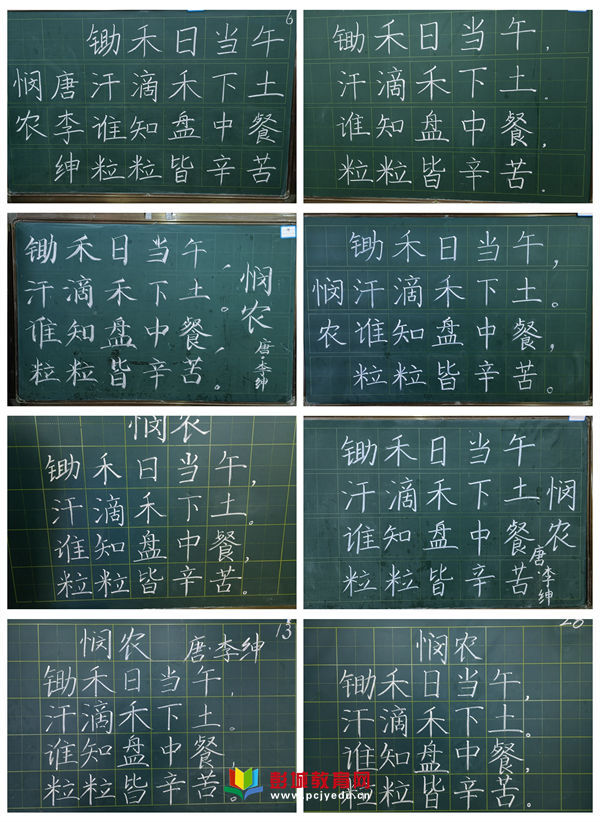 6
悯农
唐李绅
锄禾日当午
汗滴禾下土
谁知盘中餐
粒粒皆辛苦
锄禾日当午，
汗滴禾下土。
谁知盘中餐，
粒粒皆辛苦。
锄禾日当午，
汗滴禾下土。
谁知盘中餐，
粒粒皆辛苦。
悯农
唐·李绅
悯农
锄禾日当午，
汗滴禾下土。
谁知盘中餐，
粒粒皆辛苦。
悯农
锄禾日当午，
汗滴禾下土。
谁知盘中餐，
粒粒皆辛苦。
锄禾日当午
汗滴禾下土
谁知盘中餐
粒粒皆辛苦
悯农
唐·李绅
13
悯农 唐·李绅
锄禾日当午，
汗滴禾下土。
谁知盘中餐，
粒粒皆辛苦。
悯农
锄禾日当午，
汗滴禾下土。
谁知盘中餐，
粒粒皆辛苦。
彭城教育网